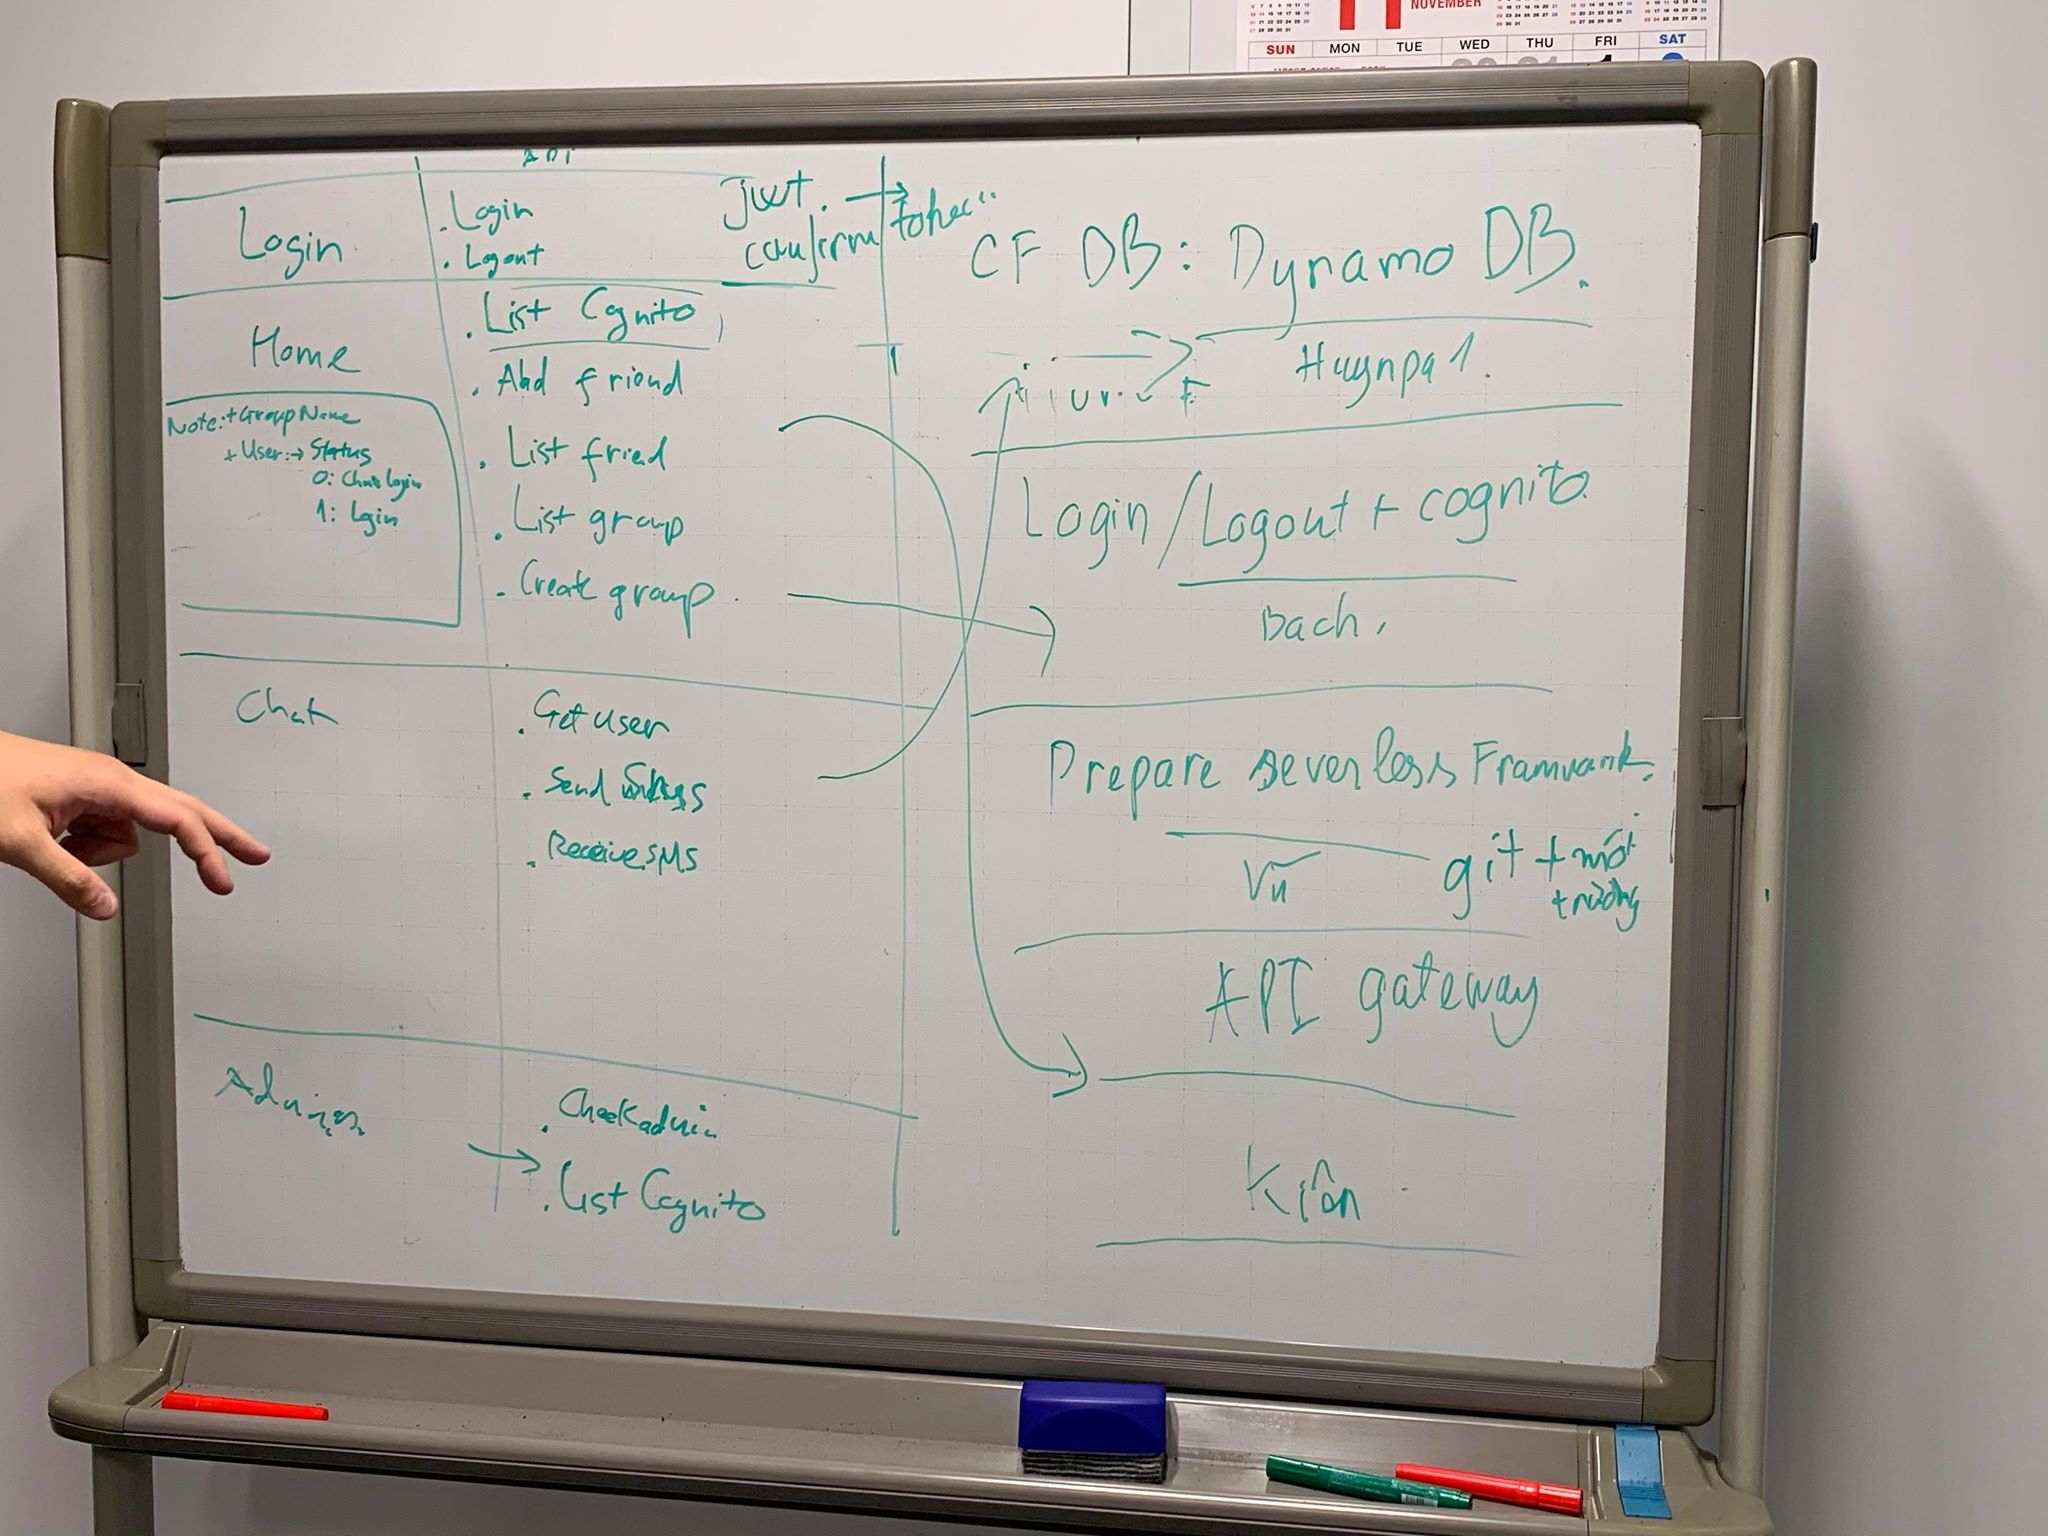 NOVEMBER
SUN MON TUE WED THU FRI SAT
API
Login
. Login
. Logout
Jwt. →
confirm
Home
. List Cognito
. Add friend
. List fried
. List group
. Create group.
Note: + GroupName
+ User: → Status
0: Chưa login
1: login
Chat
. Get user
. Send SMS
. Receive SMS
. Check admin
→ . List Cognito
CF DB: Dynamo DB.
Huynpq1.
Login/Logout + cognito
Bach.
Prepare severless Framwork.
Vũ
git + môi
trường
API gateway
Kiên